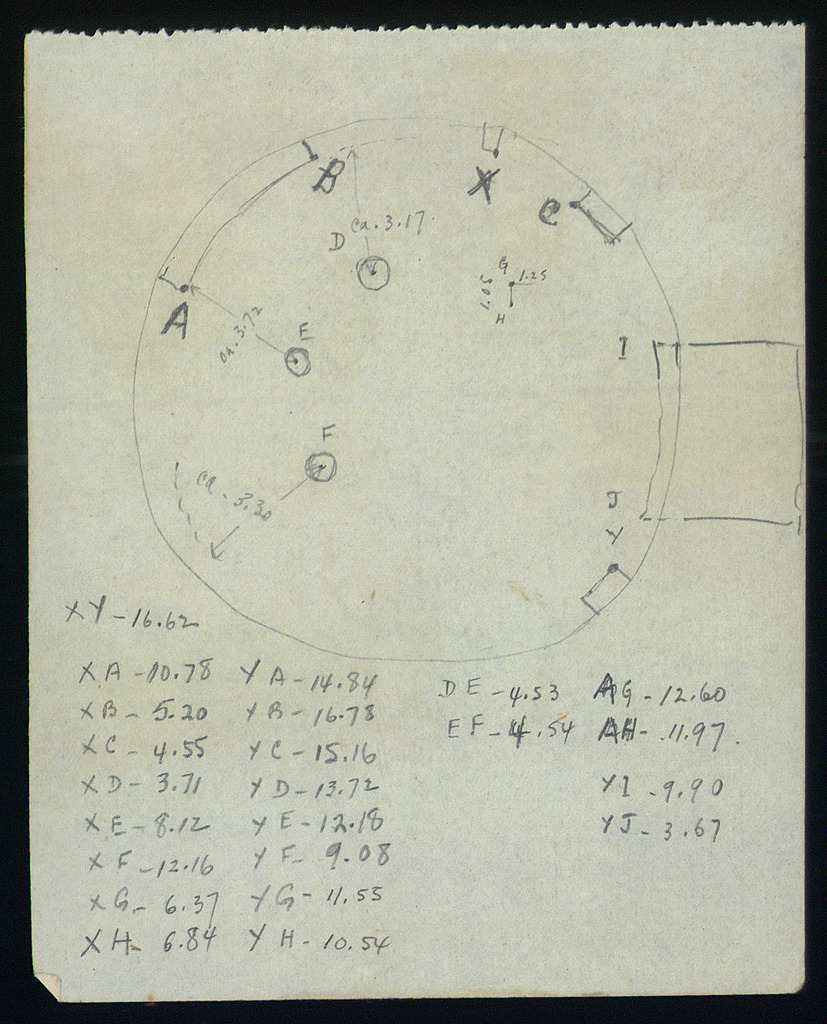 B
X
C
D ca. 3.17
G 1.25
1.05
H
A
ca. 3.72
E
I
F
ca - 3.30
J
Y
XY - 16.62
XA - 10.78 YA - 14.84 DE - 4.53 AG - 12.60
XB - 5.20 YB - 16.78 EF - 4.54 AH - 11.97
XC - 4.55 YC - 15.16
XD - 3.71 YD - 13.72 YI - 9.90
XE - 8.12 YE - 12.18 YJ - 3.67
XF - 12.16 YF - 9.08
XG - 6.37 YG - 11.55
XH - 6.84 YH - 10.54